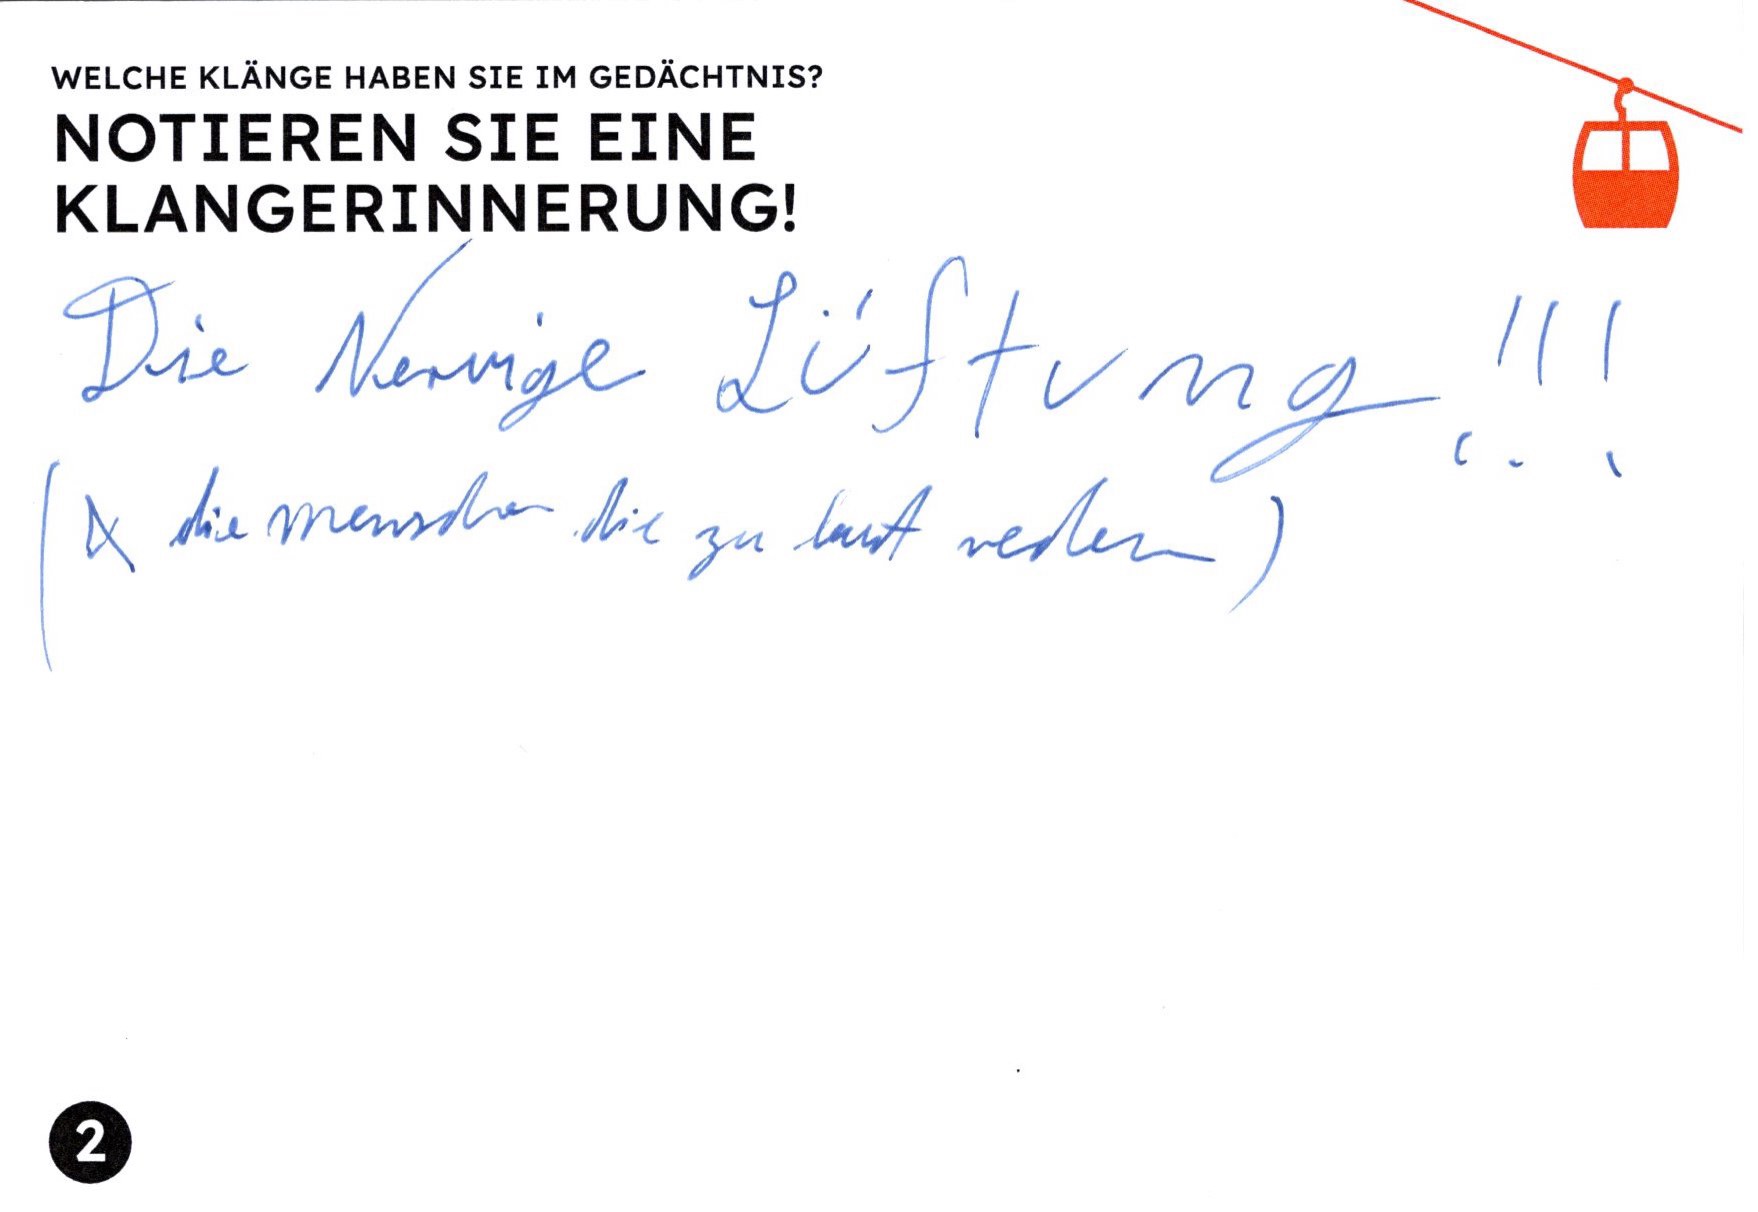 WELCHE KLÄNGE HABEN SIE IM GEDÄCHTNIS?
NOTIEREN SIE EINE
KLANGERINNERUNG!
Die Nervige Lüftung !!!
(& die menschen die zu laut reden)
2